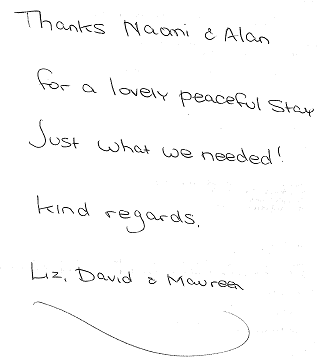 Thanks Naomi & Alan
for a lovely peaceful Stay
Just what we needed!
kind regards.
Liz, David & Maureen